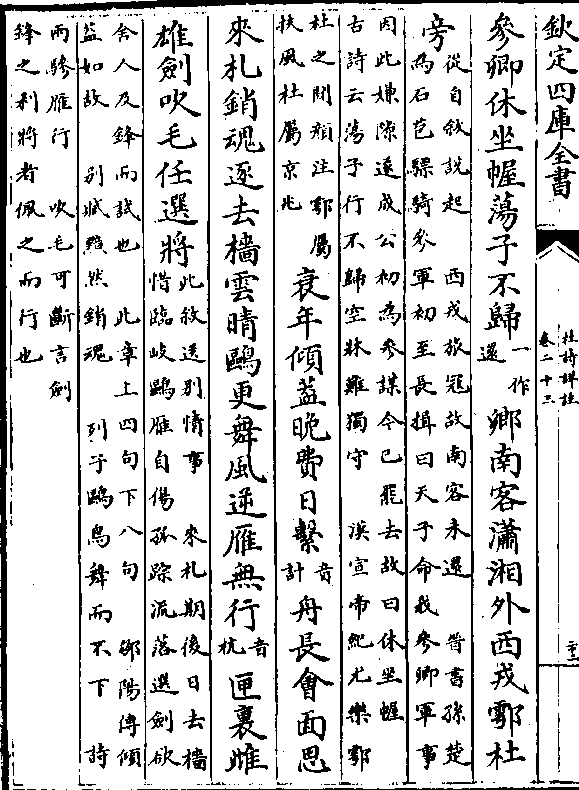 欽定四庫全書
杜詩詳註
卷二十三
參卿休坐幄蕩子不歸
一作
還
鄉南客瀟湘外西戎鄠杜
旁
從自叙說起　西戎旅冦故南客未還　晉書孫楚
為石苞驃騎參軍初至長揖曰天子命我參卿軍事
因此嫌隙遂成公初為參謀今已罷去故曰休坐幄
古詩云蕩子行不歸空牀難獨守　漢宣帝紀尤樂鄠
杜之間顔注鄠屬
扶風杜屬京兆
衰年傾蓋晚費日繫
音
計
舟長會面思
來札銷魂逐去檣雲晴鷗更舞風逆雁無行
音
杭
匣裏雌
雄劒吹毛任選將
此叙送别情事　來札期後日去檣
惜臨岐鷗雁自傷孤踪流落選劒欲
舍人及鋒而試也　此章上四句下八句　鄒陽傳傾
蓋如故　别賦黯然銷魂　列子鷗鳥舞而不下　詩
兩驂雁行　吹毛可斷言劒
鋒之利將者佩之而行也